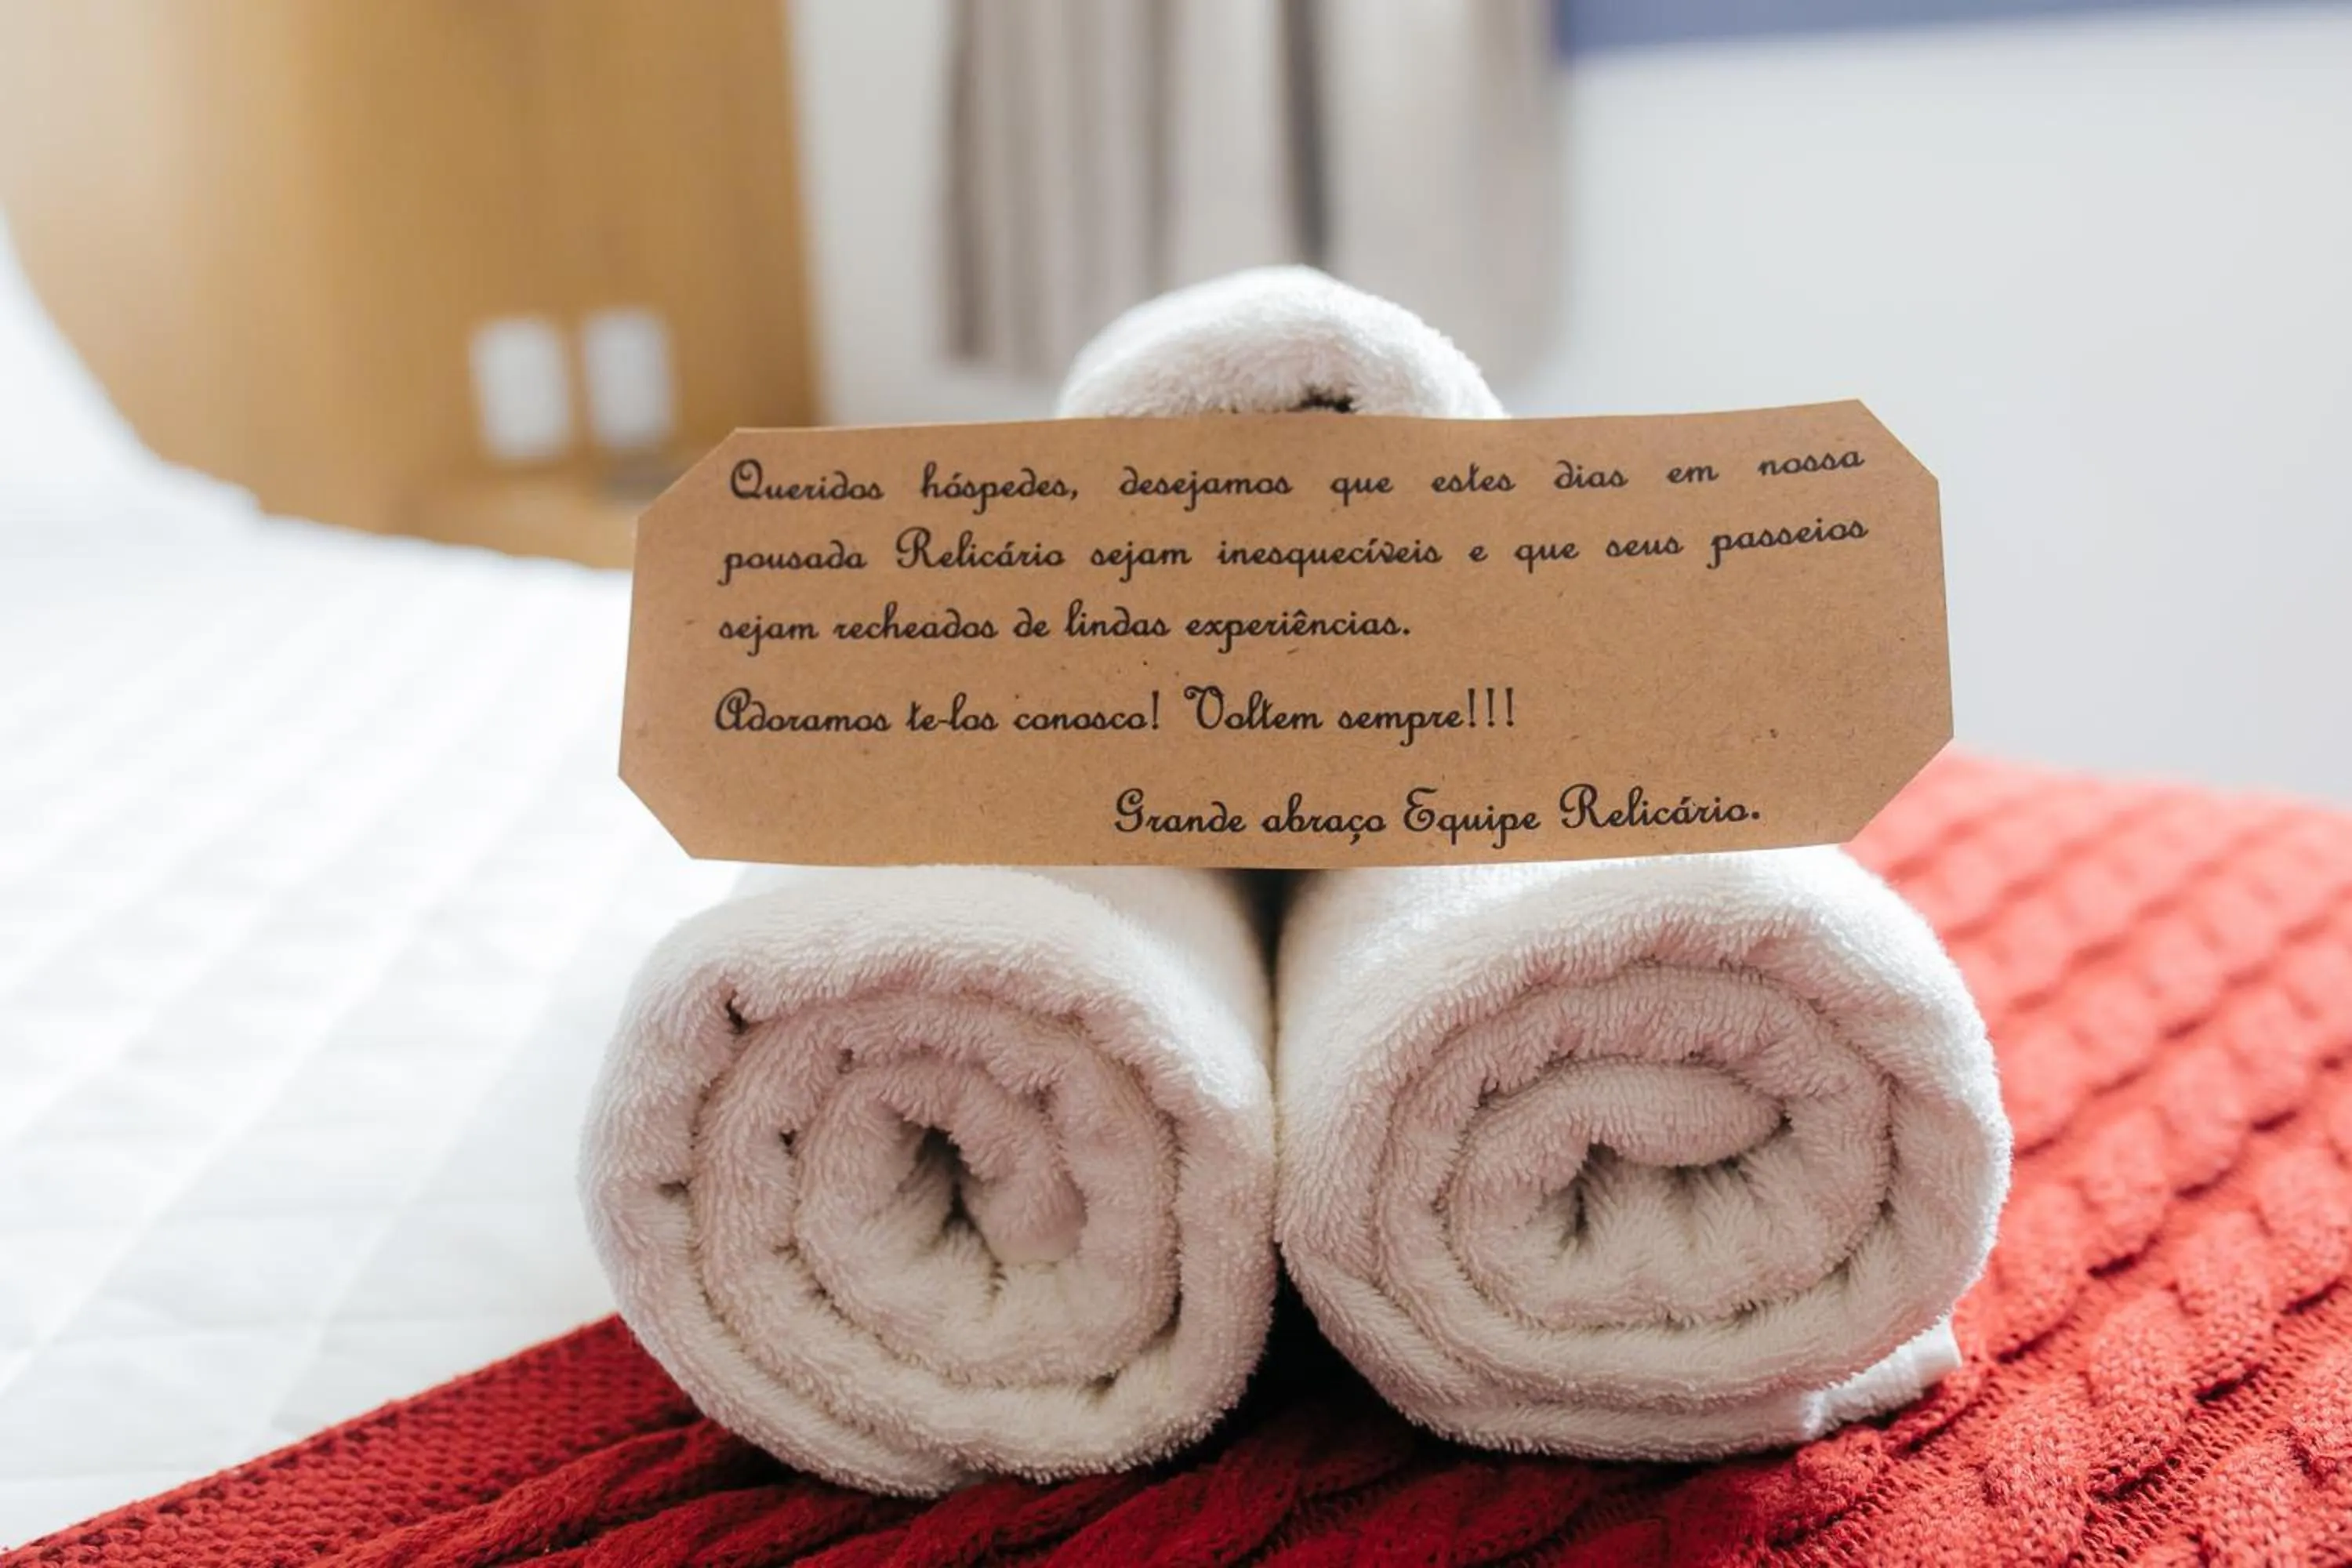 Queridos hóspedes, desejamos que estes dias em nossa
pousada Relicário sejam inesquecíveis e que seus passeios
sejam recheados de lindas experiências.
Adoramos te-los conosco! Voltem sempre!!!
Grande abraço Equipe Relicário.